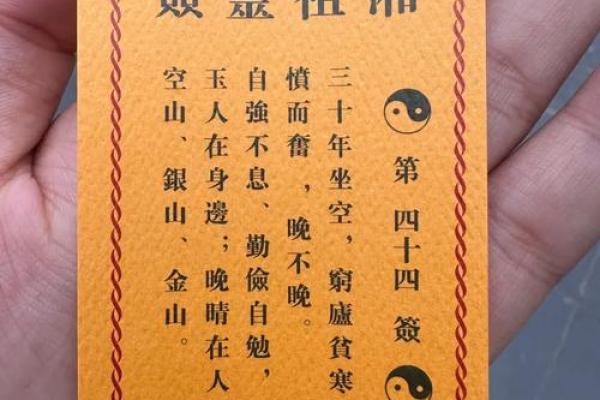 祖靈簽
第四十四簽
三十年坐空，窮廬貧寒
憤而奮，晚不晚。
自強不息、勤儉自勉，
玉人在身邊；晚晴在人
空山、銀山、金山。